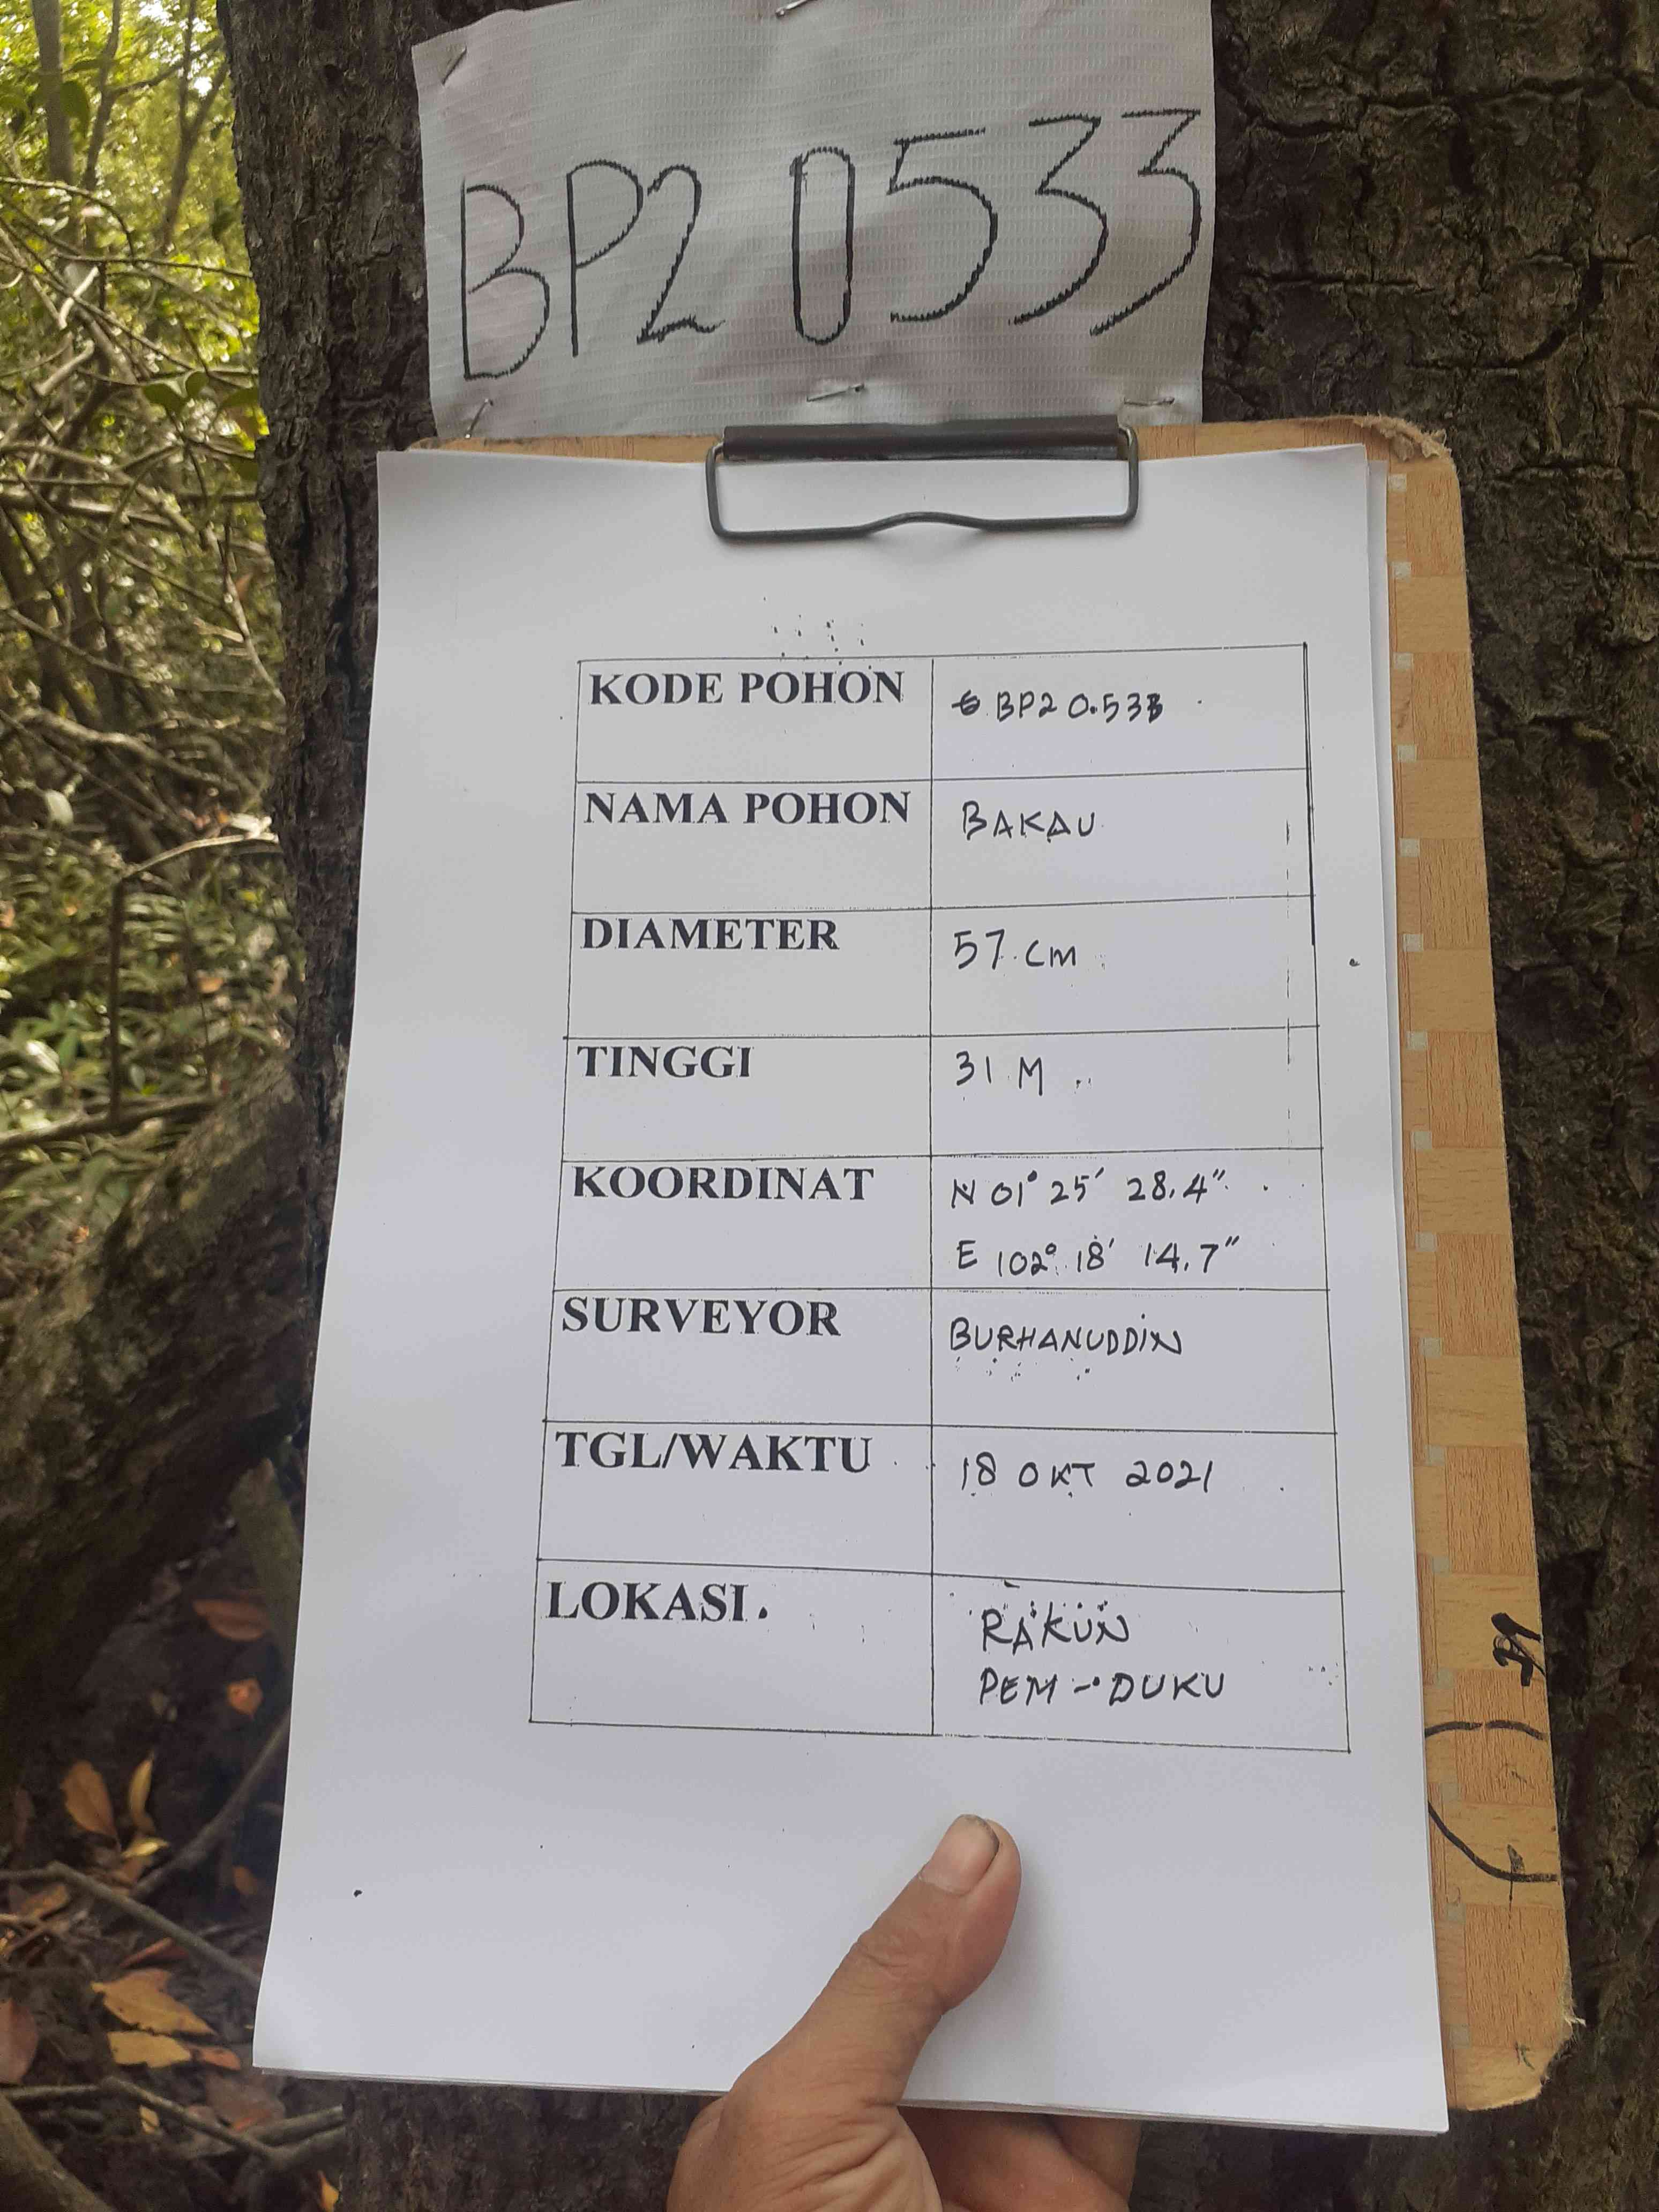 BP2 0533
KODE POHON BP2 0.533
NAMA POHON BAKAU
DIAMETER 57 cm
TINGGI 31 M
KOORDINAT N 01° 25' 28.4"
E 102° 18' 14.7"
SURVEYOR BURHANUDDIN
TGL/WAKTU 18 OKT 2021
LOKASI. RAKUN
PEM - DUKU